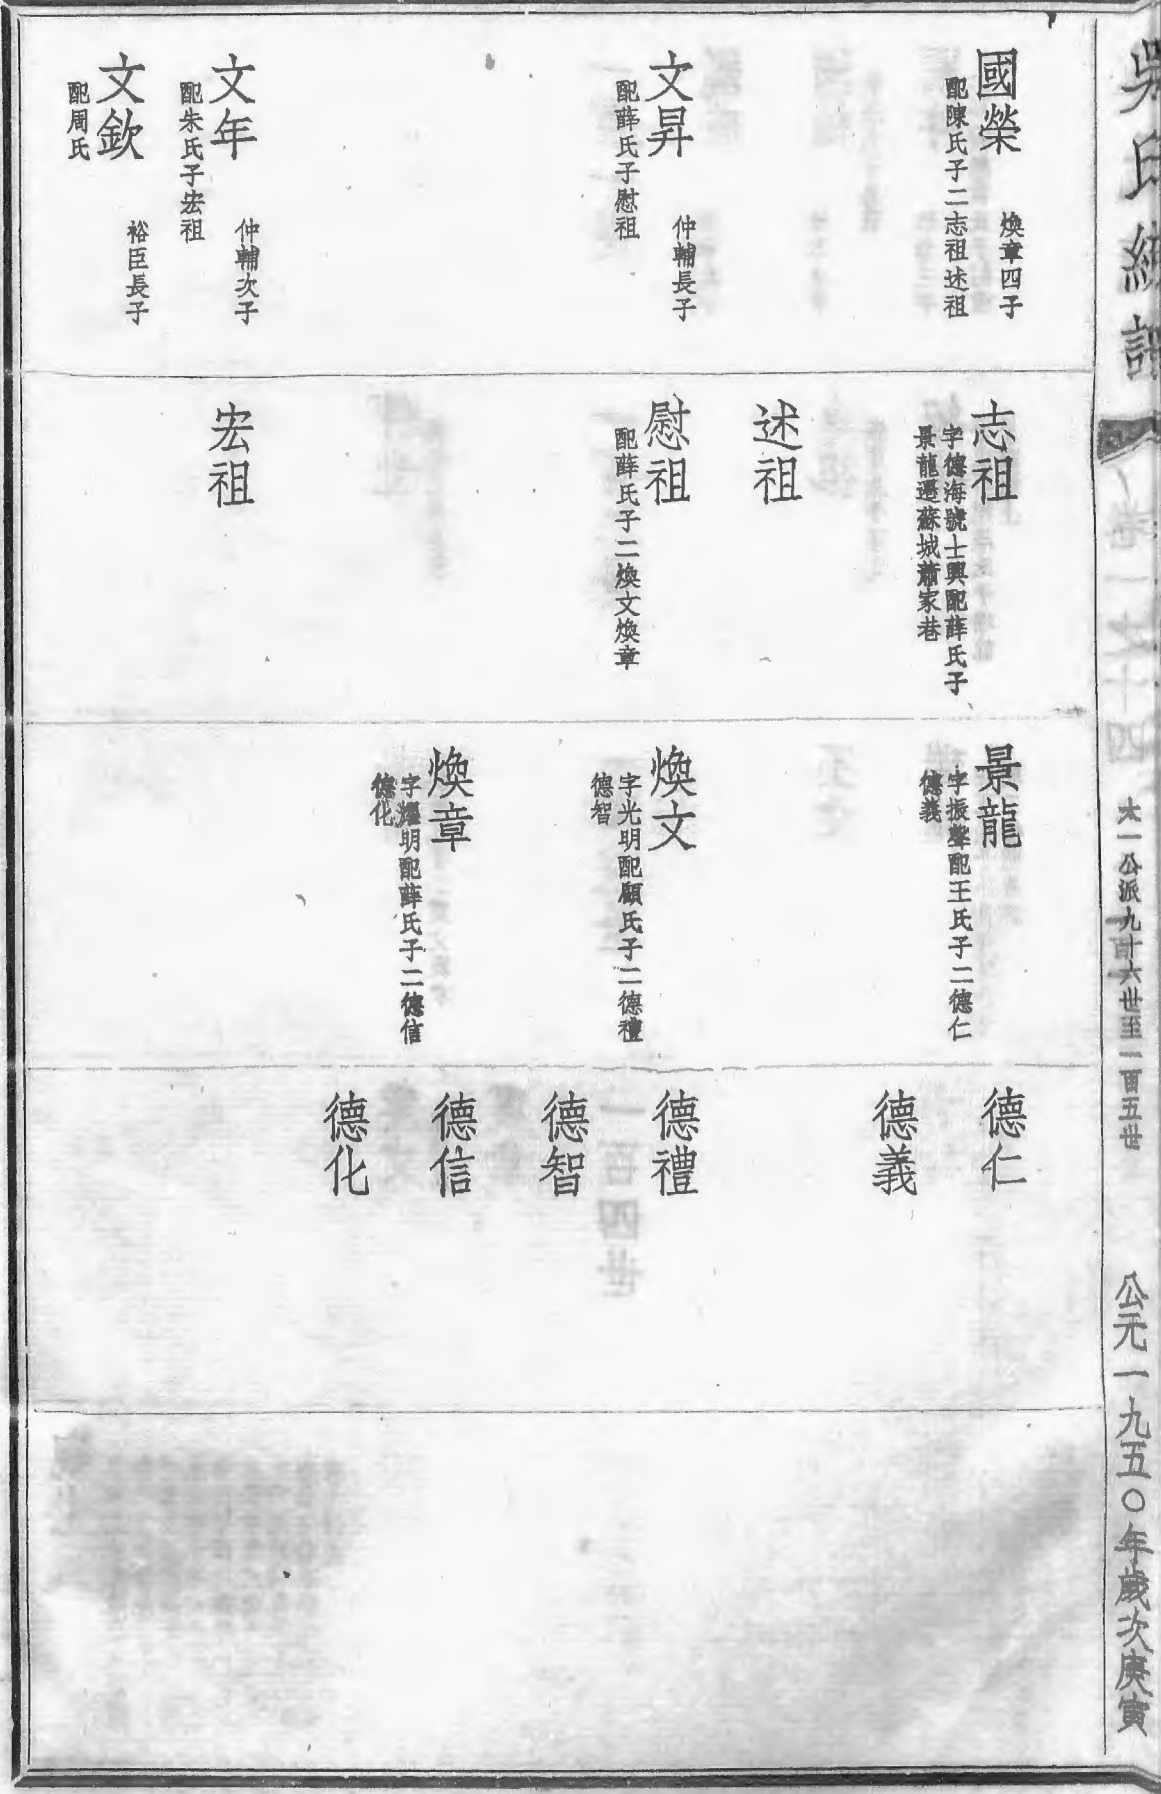 吳氏統譜
卷一之十四
大一公派九十六世至一百五世
公元一九五〇年歲次庚寅
國榮
煥章四子
配陳氏子二志祖述祖
文昇
仲輔長子
配薛氏子慰祖
文年
仲輔次子
配朱氏子宏祖
文欽
裕臣長子
配周氏
志祖
字德海號士興配薛氏子
景龍遷蘇城蕭家巷
述祖
慰祖
配薛氏子二煥文煥章
宏祖
景龍
字振聲配王氏子二德仁
德義
煥文
字光明配顧氏子二德禮
德智
煥章
字耀明配薛氏子二德信
德化
德仁
德義
德禮
德智
德信
德化